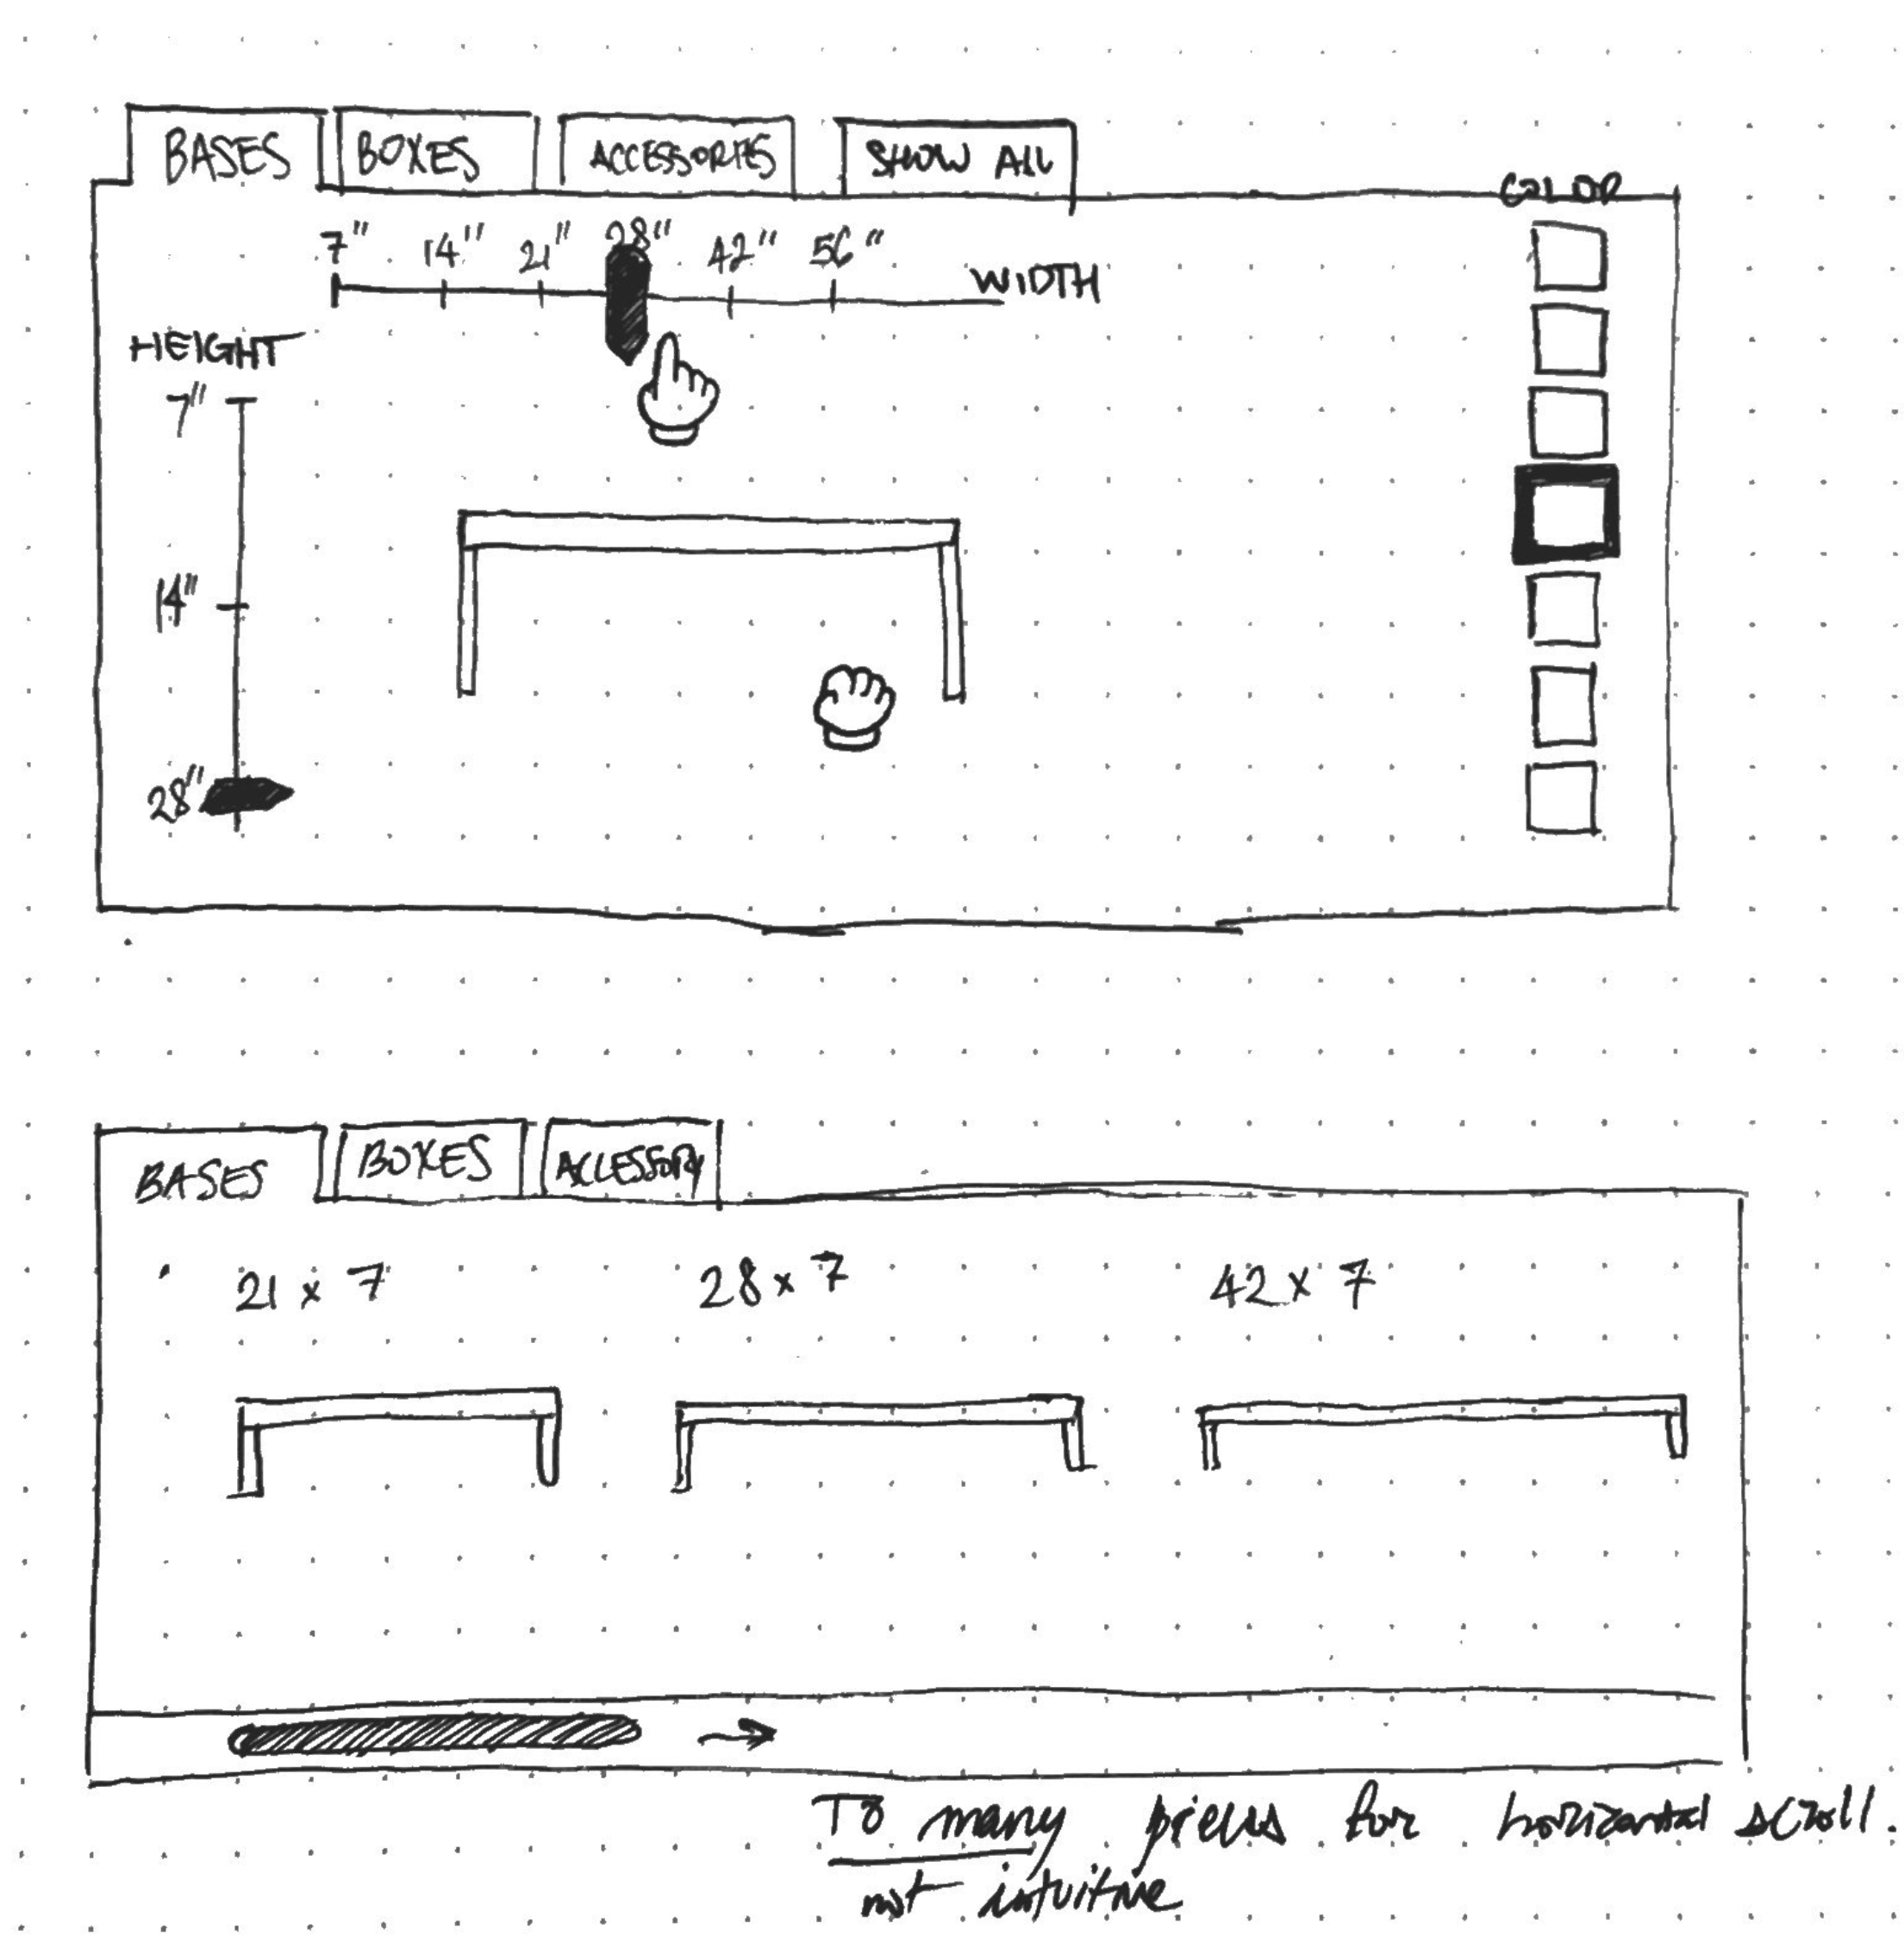 BASES BOXES ACCESSORIES SHOW ALL
COLOR
7" 14" 21" 28" 42" 56"
WIDTH
HEIGHT
7"
14"
28"
BASES BOXES ACCESSORY
21 x 7 28 x 7 42 x 7
TO many pieces for horizontal scroll.
not intuitive